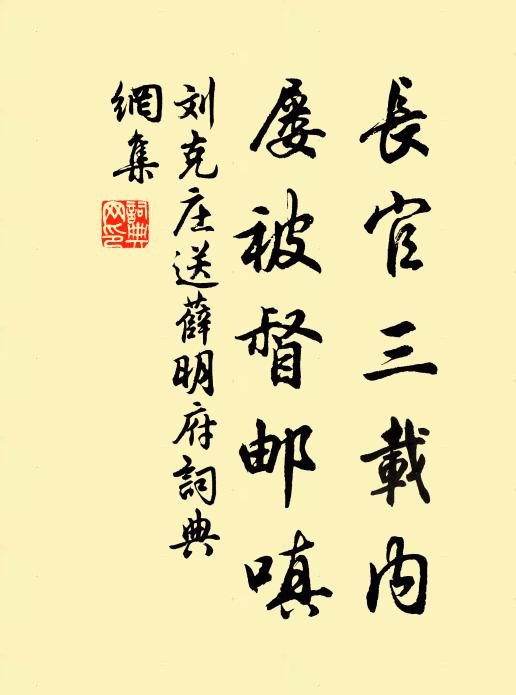 長官三載内
屡被督邮嗔
刘克庄送薛明府詞典
網集
詞典网印